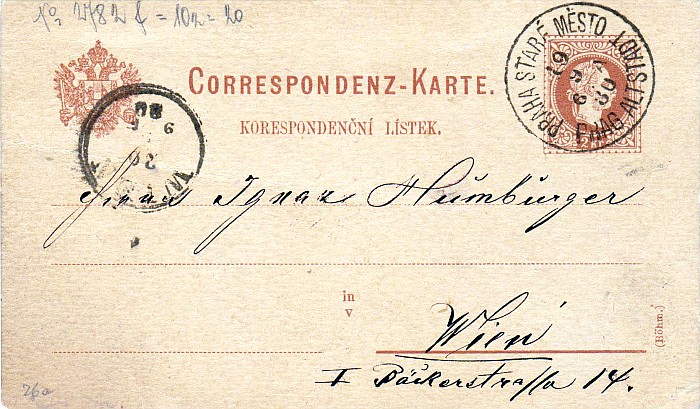 No 2782 f = 102 = 20
CORRESPONDENZ-KARTE.
KORESPONDENČNÍ LÍSTEK.
PRAHA STARÉ MĚSTO
PRAG ALTSTADT
80
9
WIEN
Herrn Ignaz Humburger
in
v
Wien
I Bäckerstrasse 14.
(Böhm.)
26a